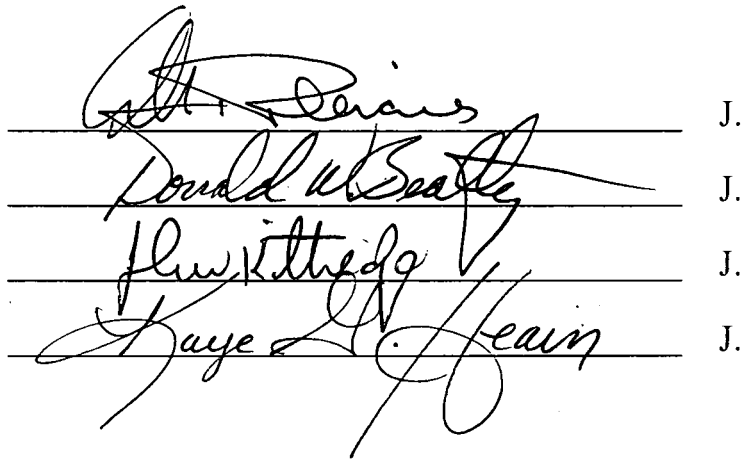 J.
Donald W. Beatty J.
Kittredge J.
Kaye G. Hearn J.